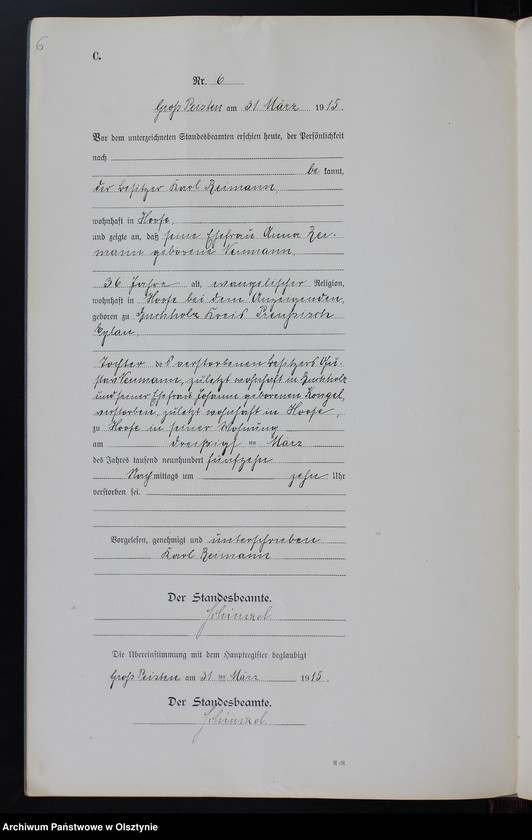 6
C.
Nr. 6
Groß Peisten am 31 März 1915.
Vor dem unterzeichneten Standesbeamten erschien heute, der Persönlichkeit
nach
be kannt,
der Besitzer Karl Reimann,
wohnhaft in Hoofe,
und zeigte an, daß seine Ehefrau Anna Rei-
mann geborene Neumann,
36 Jahre alt, evangelischer Religion,
wohnhaft in Hoofe bei dem Anzeigenden,
geboren zu Buchholz Kreis Preußisch
Eylau,
Tochter des verstorbenen Besitzers Gu-
stav Neumann, zuletzt wohnhaft in Buchholz
und seiner Ehefrau Johanne geborenen Kongel,
verstorben, zuletzt wohnhaft in Hoofe,
zu Hoofe in seiner Wohnung
am dreißigsten März
des Jahres tausend neunhundert fünfzehn
Nachmittags um zehn Uhr
verstorben sei.
Vorgelesen, genehmigt und unterschrieben
Karl Reimann
Der Standesbeamte.
Schinzel
Die Übereinstimmung mit dem Hauptregister beglaubigt
Groß Peisten am 31 ten März 1915.
Der Standesbeamte.
Schinzel
Archiwum Państwowe w Olsztynie